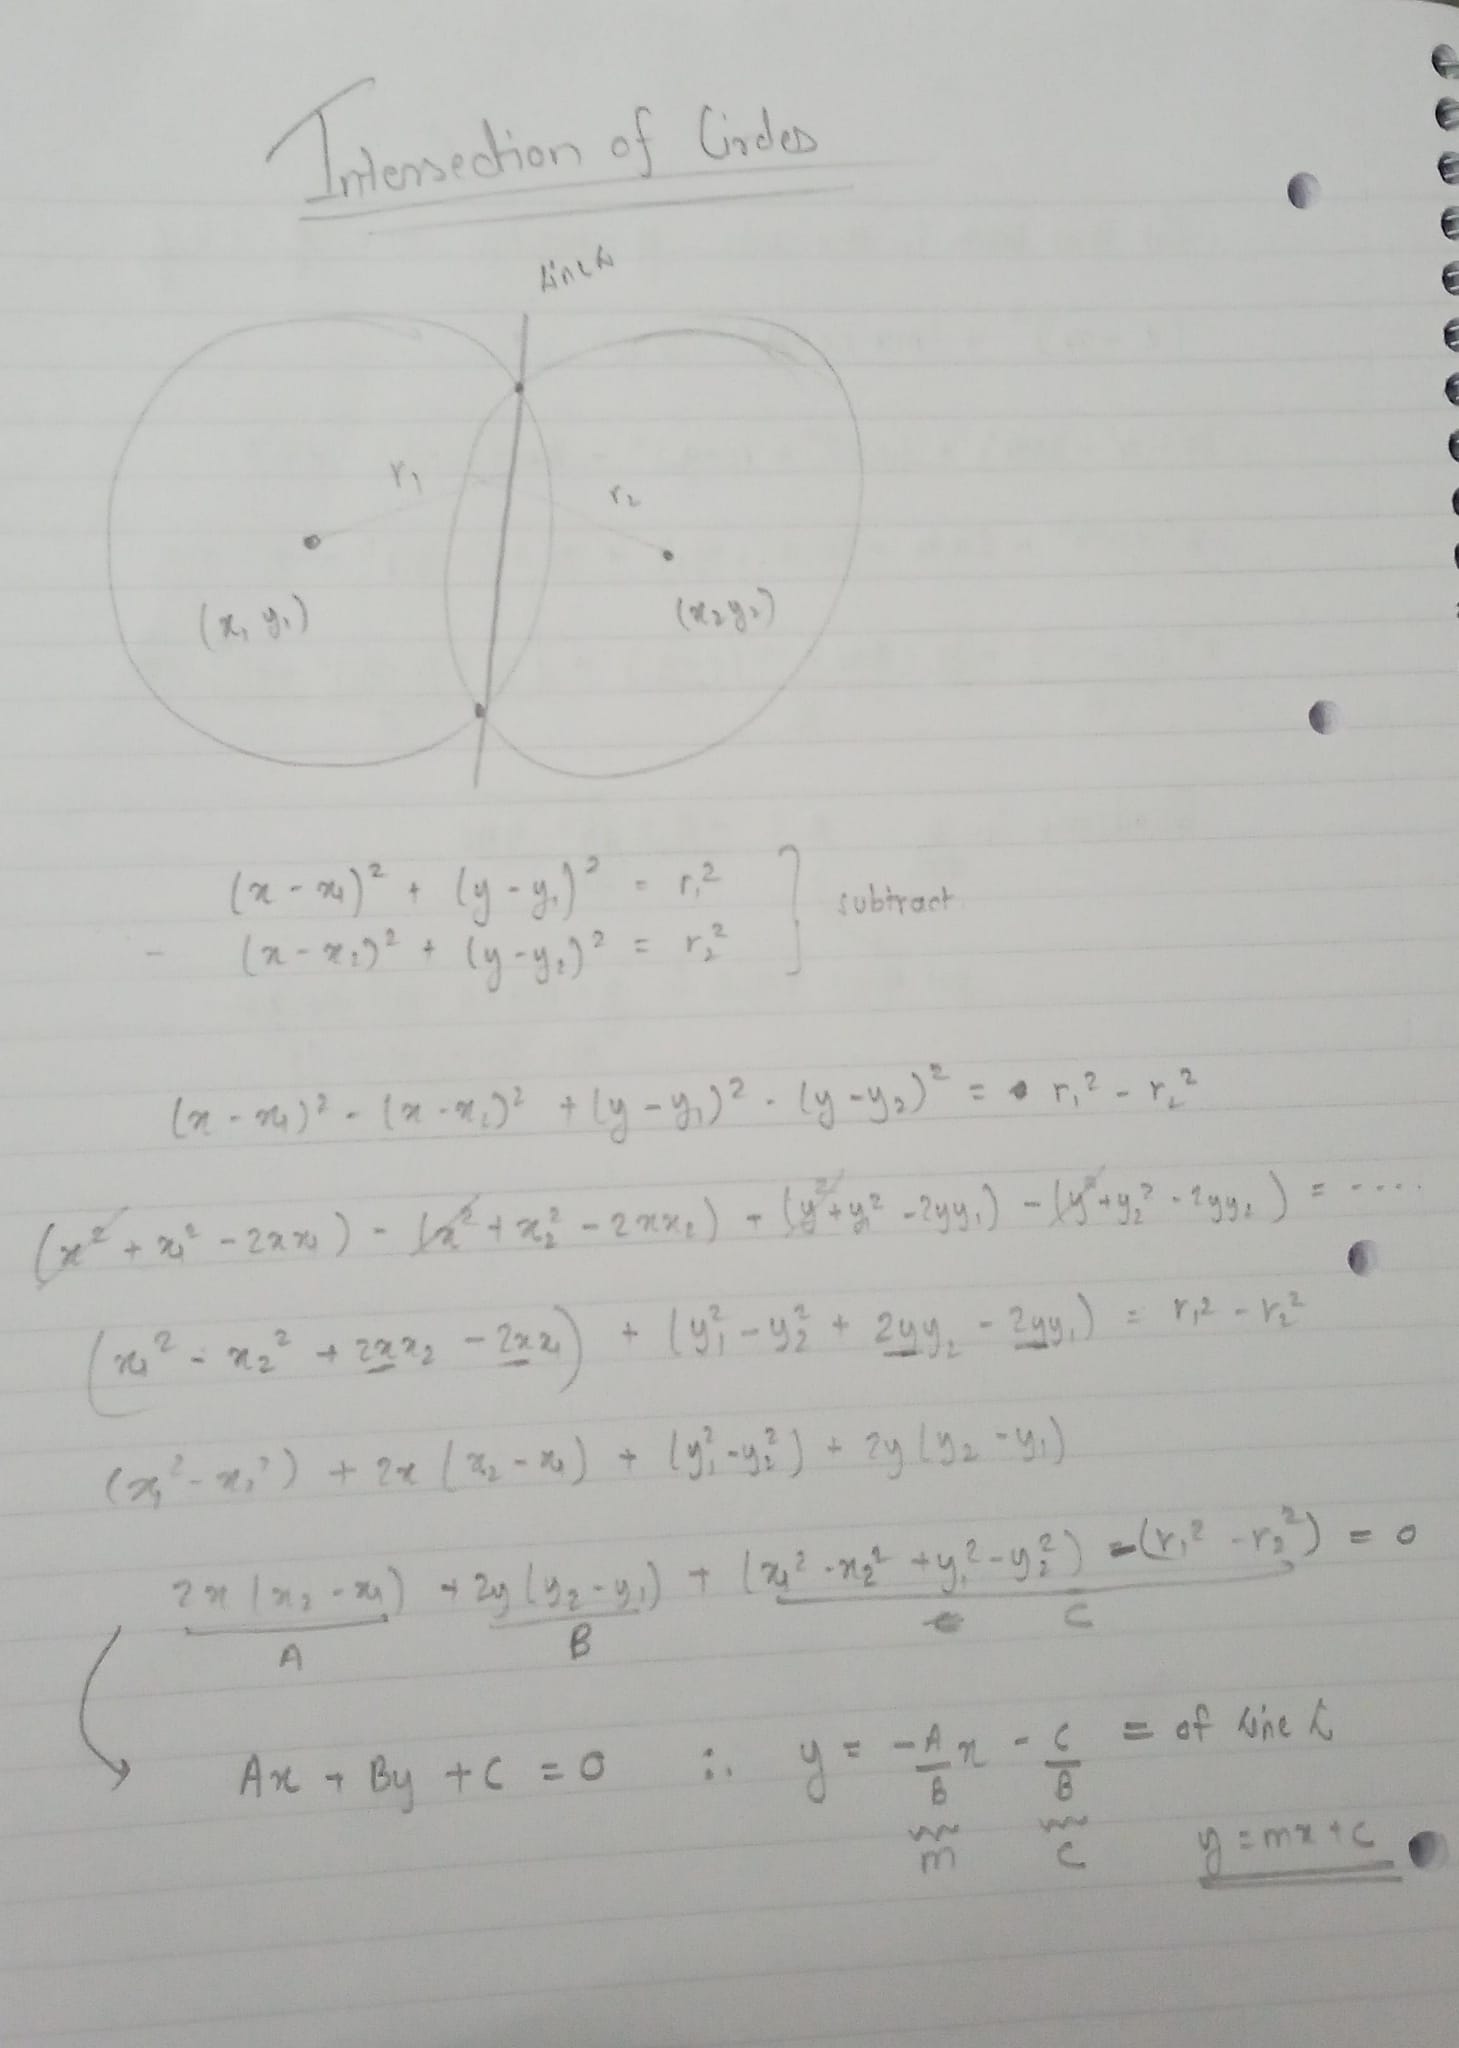 Intersection of Circles
Line L
r₁
r₂
(x₁ y₁)
(x₂ y₂)
(x - x₁)² + (y - y₁)² = r₁²
- (x - x₂)² + (y - y₂)² = r₂² } subtract
(x - x₁)² - (x - x₂)² + (y - y₁)² - (y - y₂)² = r₁² - r₂²
(x² + x₁² - 2xx₁) - (x² + x₂² - 2xx₂) + (y² + y₁² - 2yy₁) - (y² + y₂² - 2yy₂) = .....
(x₁² - x₂² + 2xx₂ - 2xx₁) + (y₁² - y₂² + 2yy₂ - 2yy₁) = r₁² - r₂²
(x₁² - x₂²) + 2x (x₂ - x₁) + (y₁² - y₂²) + 2y (y₂ - y₁)
2x (x₂ - x₁) + 2y (y₂ - y₁) + (x₁² - x₂² + y₁² - y₂²) - (r₁² - r₂²) = 0
A B C
Ax + By + C = 0 ∴ y = -A/B x - C/B = of Line L
m c y = mx + c